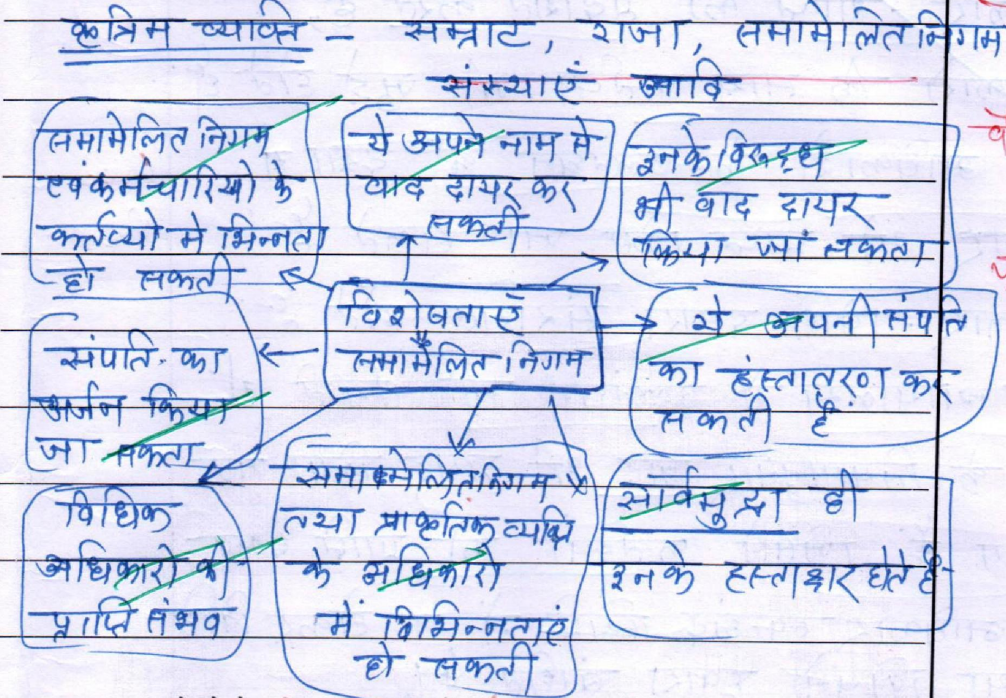 कृत्रिम व्यक्ति - सम्राट, राजा, समामेलित निगम
संस्थाएँ आदि
समामेलित निगम
एवं कर्मचारियो के
कर्तव्यो मे भिन्नता
हो सकती
ये अपने नाम से
वाद दायर कर
सकती
इनके विरूद्ध
भी वाद दायर
किया जा सकता
विशेषताएँ
समामेलित निगम
ये अपनी संपति
का हस्तातरण कर
सकती है
संपति का
अर्जन किया
जा सकता
विधिक
अधिकारो की
प्राप्ति संभव
समामेलित निगम
तथा प्राकृतिक व्यक्ति
के अधिकारो
में विभिन्नताएं
हो सकती
सार्वमुद्रा ही
इनके हस्ताक्षर होते है